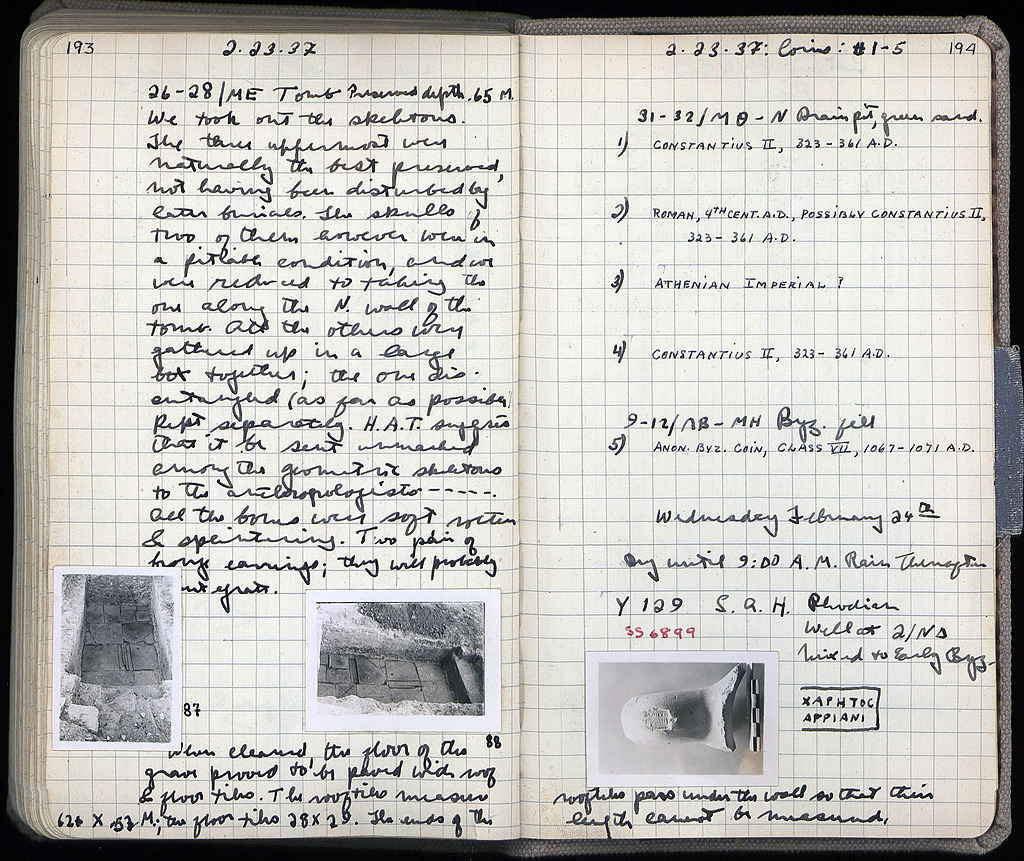 193
2.23.37
26-28/ME Tomb Preserved depth .65 M.
We took out the skeletons.
The three uppermost were
naturally the best preserved,
not having been disturbed by
later burials. The skulls of
two of them however were in
a pitiable condition, and we
were reduced to taking the
one along the N. wall of the
tomb. All the others were
gathered up in a large
lot together; the one dis-
entangled (as far as possible)
kept separately. H.A.T. suggests
that it be sent unmarked
among the geometric skeletons
to the anthropologists -----.
All the bones were soft rotten
& splintering. Two pair of
bronze earrings; they will probably
87
88
When cleaned, the floor of the
grave proved to be paved with roof
& floor tiles. The rooftiles measure
.626 X .53 M; the floor tiles 28 X 29. The ends of the
2.23.37: Coins: #1-5
194
31-32/ΜΘ-Ν Drain pit, green sand.
1) CONSTANTIUS II, 323-361 A.D.
2) ROMAN, 4TH CENT. A.D., POSSIBLY CONSTANTIUS II,
323-361 A.D.
3) ATHENIAN IMPERIAL ?
4) CONSTANTIUS II, 323-361 A.D.
9-12/ΛΒ-ΜΗ Byz. fill
5) ANON. BYZ. COIN, CLASS VII, 1067-1071 A.D.
Wednesday February 24th
Dry until 9:00 A.M. Rain Thereafter
Y 129 S.A.H. Rhodian
SS 6899
Well at 2/ΝΔ
Mixed to Early Byz.
ΧΑΡΗΤΟC
ΑΡΡΙΑΝΙ
rooftiles pass under the wall so that their
length cannot be measured.